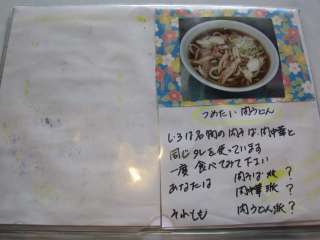 つめたい 肉うどん
しろは名物の肉そば、肉中華と
同じタレを使っています
一度 食べてみて下さい
あなたは 肉そば派 ?
肉中華派 ?
それとも 肉うどん派 ?